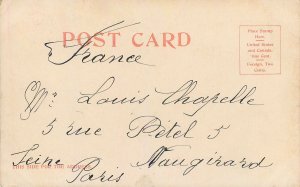 POST CARD
Place Stamp
Here.
United States
and Canada,
One Cent.
Foreign, Two
Cents.
France
Mr. Louis Chapelle
5 rue Pétel 5
Vaugirard
Seine Paris
THIS SIDE FOR THE ADDRESS